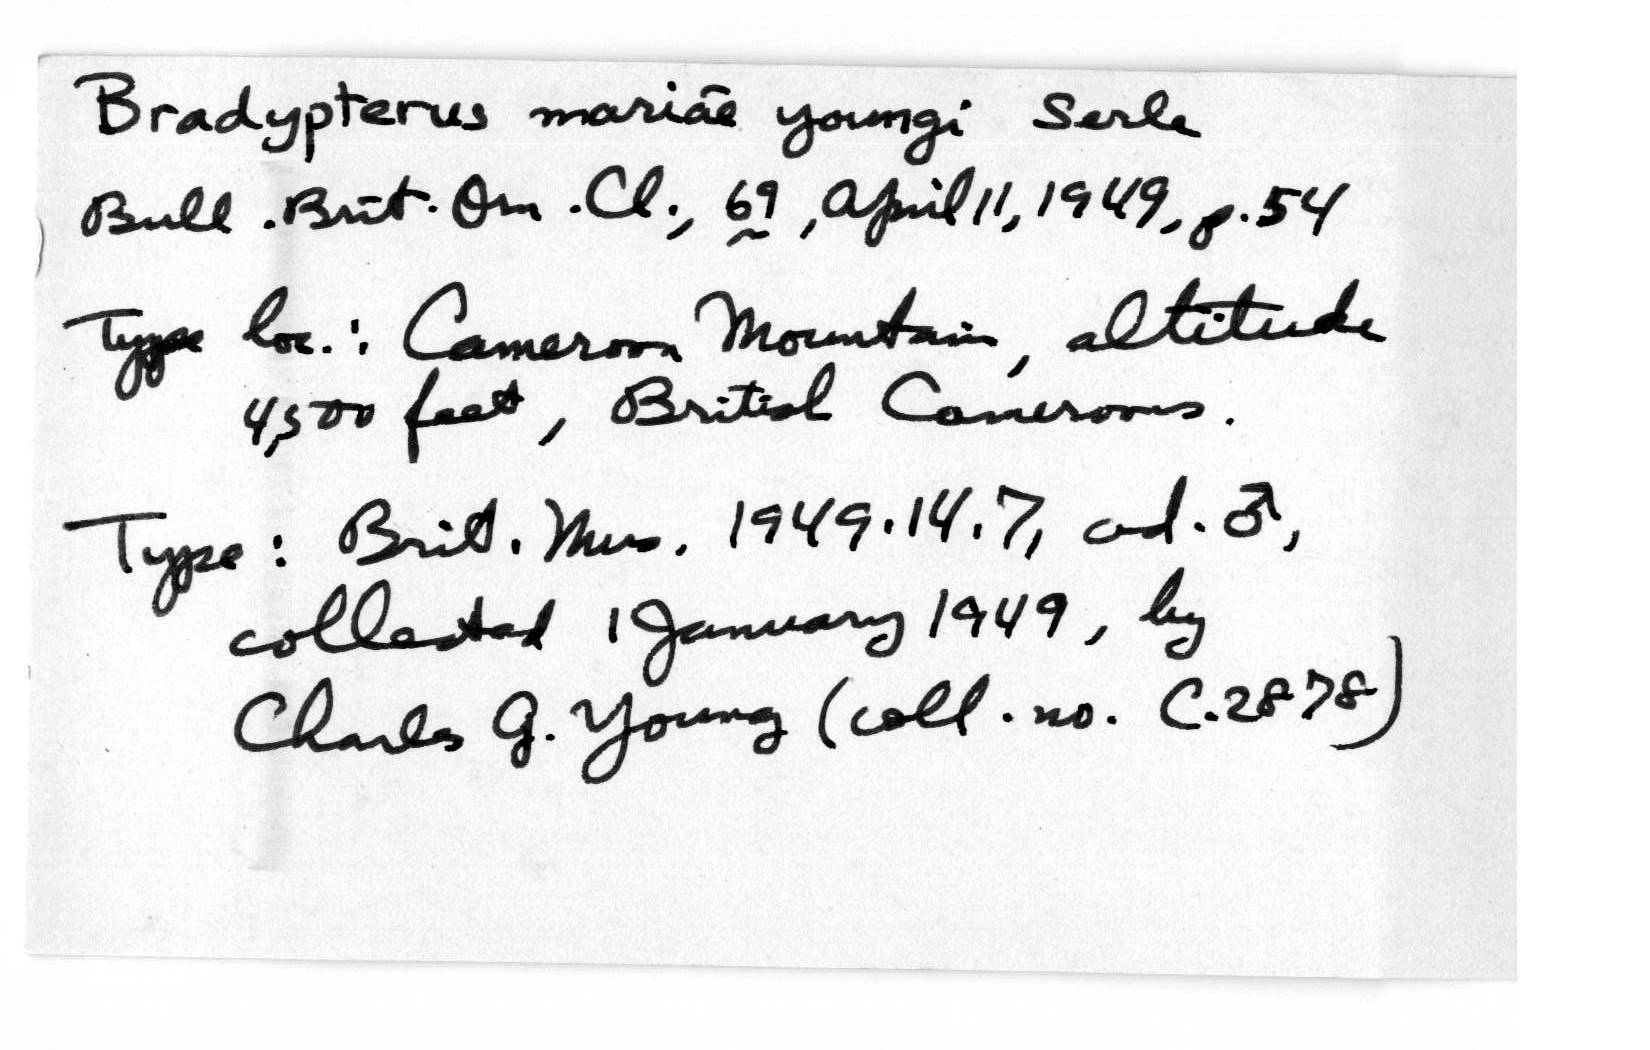 Bradypterus mariae youngi Serle
Bull. Brit. Orn. Cl., 69, April 11, 1949, p. 54
Type loc.: Cameroon Mountain, altitude
4,500 feet, British Cameroons.
Type: Brit. Mus. 1949.14.7, ad. ♂,
collected 1 January 1949, by
Charles G. Young (coll. no. C.2878)